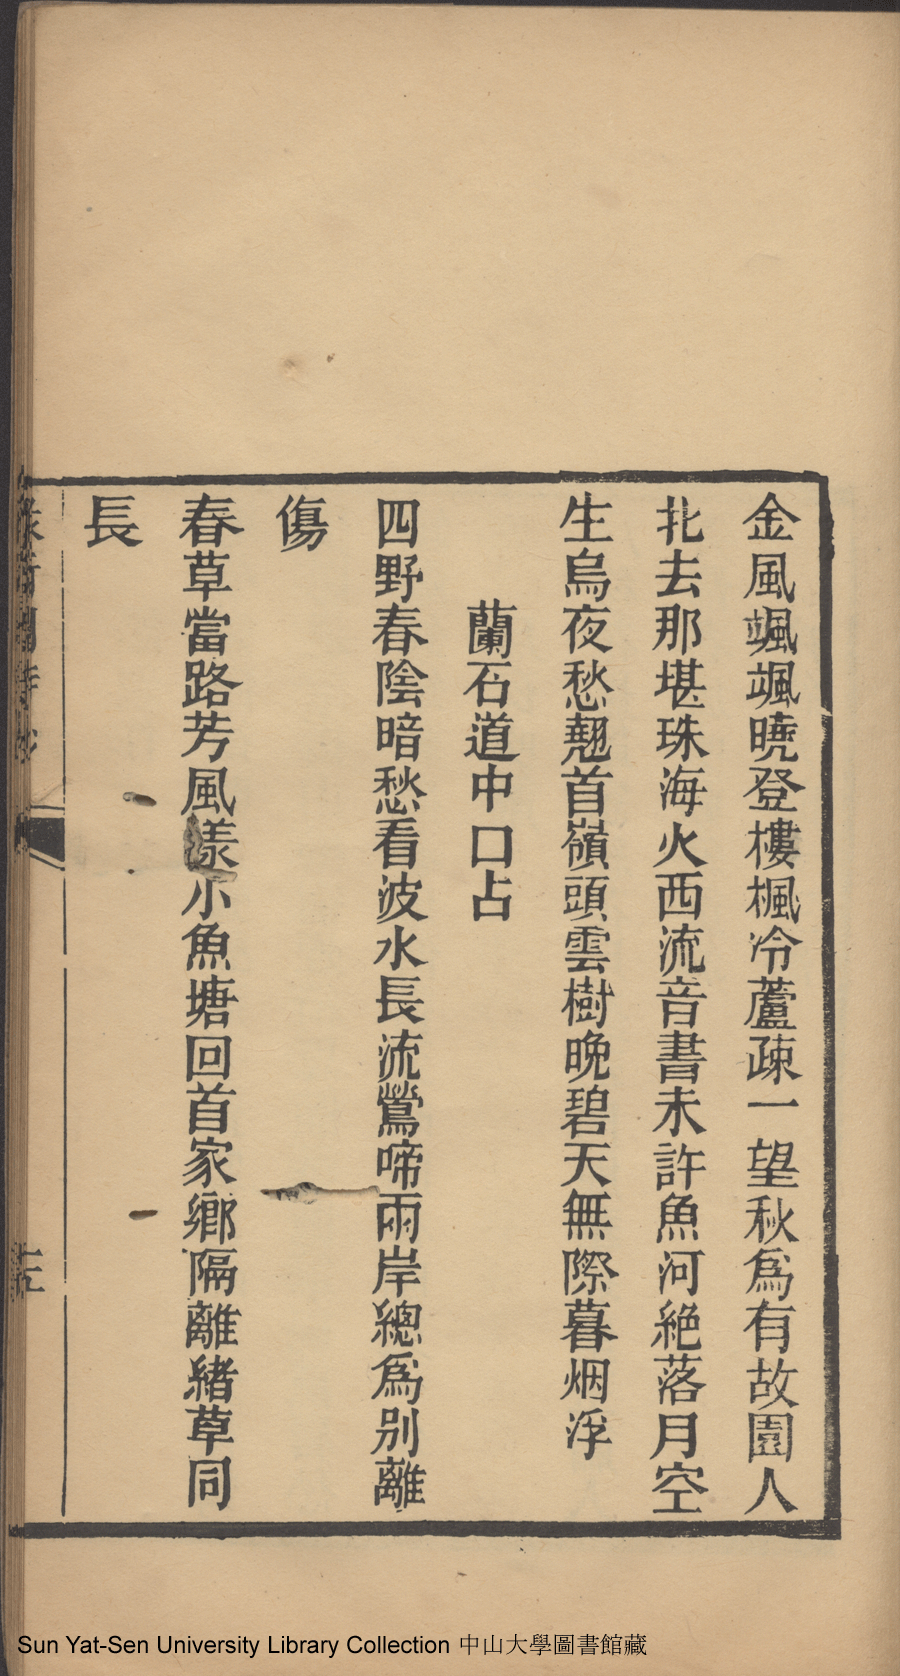 金風颯颯曉登樓楓冷蘆疎一望秋爲有故園人
北去那堪珠海火西流音書未許魚河絶落月空
生烏夜愁翹首嶺頭雲樹晚碧天無際暮烟浮
蘭石道中口占
四野春陰暗愁看波水長流鶯啼兩岸總爲別離
傷
春草當路芳風漾小魚塘回首家鄉隔離緒草同
長
Sun Yat-Sen University Library Collection 中山大學圖書館藏